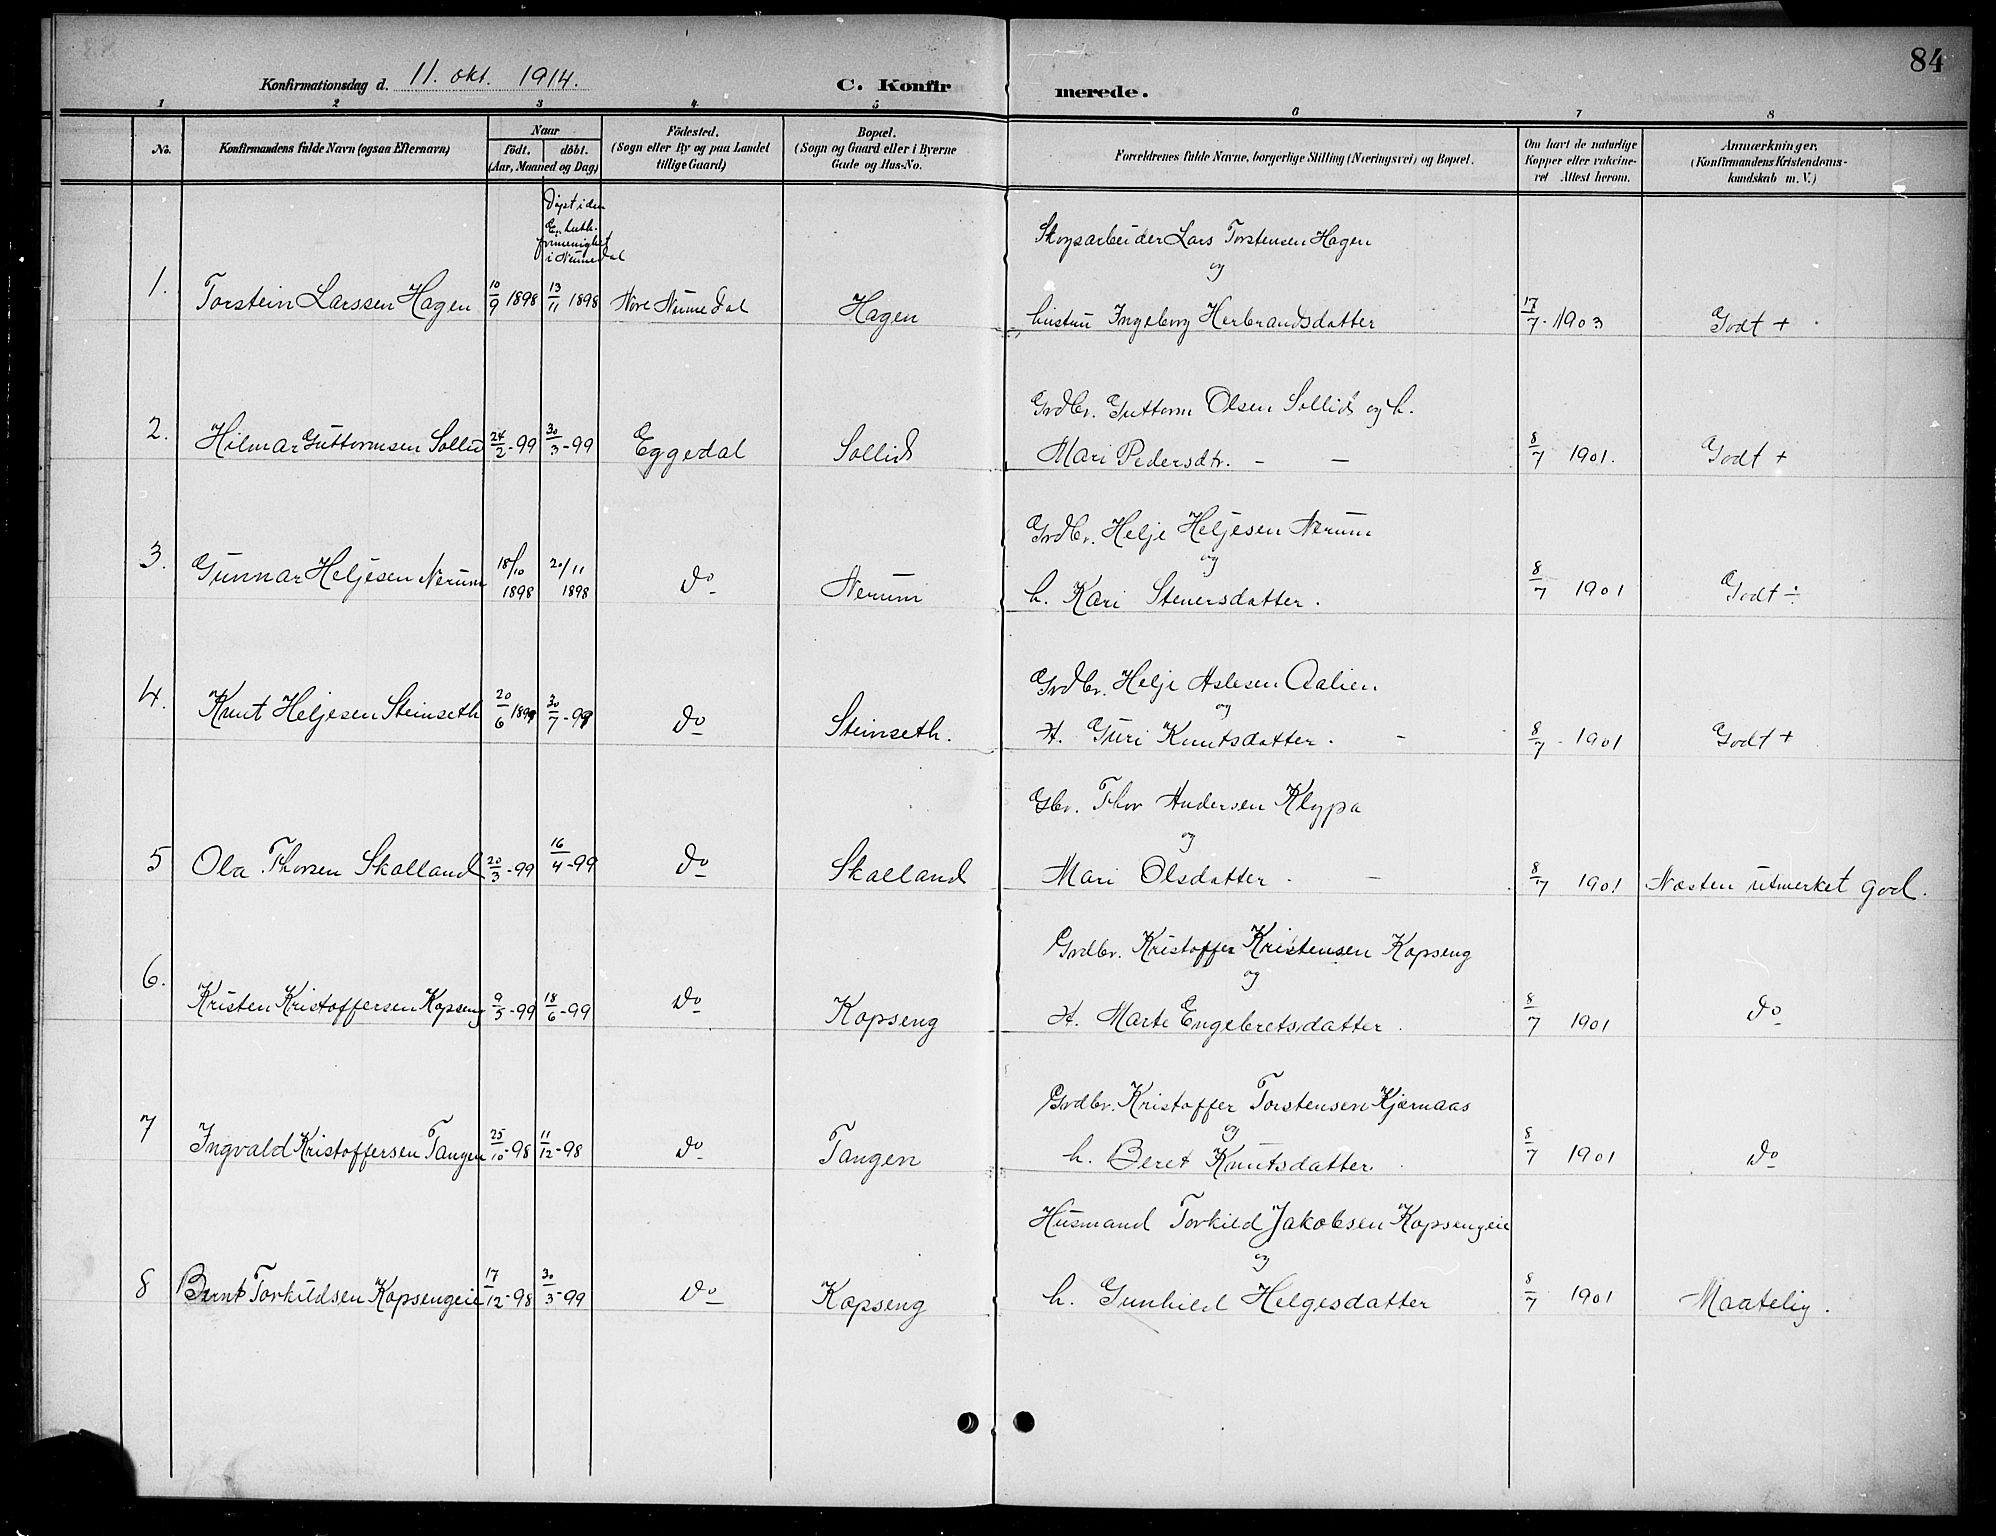 84
Konfirmationsdag d. 11. okt. 1914.
C. Konfirmerede.
1 2 3 4 5 6 7 8
No.
Konfirmandens fulde Navn (ogsaa Efternavn)
Naar
födt. döbt.
(Aar, Maaned og Dag)
Födested.
(Sogn eller By og paa Landet
tillige Gaard)
Bopæl.
(Sogn og Gaard eller i Byerne
Gade og Hus-No.
Forældrenes fulde Navne, borgerlige Stilling (Næringsvei) og Bopæl.
Om havt de naturlige
Kopper eller vakcine-
ret Attest herom.
Anmærkninger.
(Konfirmandens Kristendoms-
kundskab m. V.)
Döpt i den
Ev. luth.
frimenighet
i Numedal
Skogsarbeider Lars Torstensen Hagen
og
1. Torstein Larssen Hagen 10/9 1898 13/11 1898 Nore Numedal Hagen hustru Ingeborg Herbrandsdatter 17/7 - 1903 Godt +
Grdbr. Guttorm Olsen Sollid og h.
2. Hilmar Guttormsen Sollid 24/2 - 99 30/3 - 99 Eggedal Sollid Mari Pedersdtr. - - 8/7 1901. Godt +
Grdbr. Helje Heljesen Nerum
og
3. Gunnar Heljesen Nerum 18/10 1898 20/11 1898 do Nerum h. Kari Steuersdatter. 8/7 1901 Godt ÷
Grdbr. Helje Aslesen Aalien
og
4. Knut Heljesen Steinseth 20/6 1899 30/7 - 99 do Steinseth. H. Guri Knutsdatter. - 8/7 - 1901 Godt +
Gbr. Thor Andersen Klypa
og
5 Ola Thorsen Skalland 20/3 - 99 16/4 - 99 do Skalland Mari Olsdatter - - 8/7 1901 Næsten utmerket god.
Grdbr. Kristoffer Kristensen Kopseng
og
6. Kristen Kristoffersen Kopseng 9/5 - 99 18/6 - 99 do Kopseng H. Marte Engebretsdatter 8/7 1901 do
Grdbr. Kristoffer Torstensen Kjernaas
og
7 Ingvald Kristoffersen Tangen 25/10 - 98 11/12 - 98 do Tangen h. Beret Knutsdatter 8/7 1901 do
Husmand Torkild Jakobsen Kopsengeie
og
8 Bernt Torkildsen Kopsengeie 17/12 - 98 30/3 - 99 do Kopseng h. Gunhild Helgesdatter 8/7 1901 Maatelig.